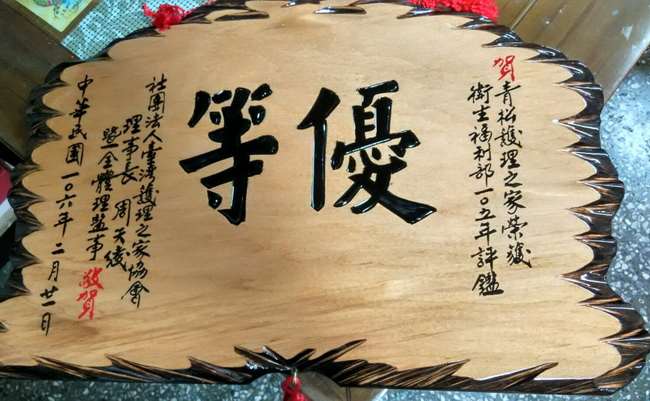 賀青松護理之家榮獲
衛生福利部一〇五年評鑑
優等
社團法人臺灣護理之家協會
理事長 周天綫
暨全體理監事 敬賀
中華民國一〇六年二月廿一日